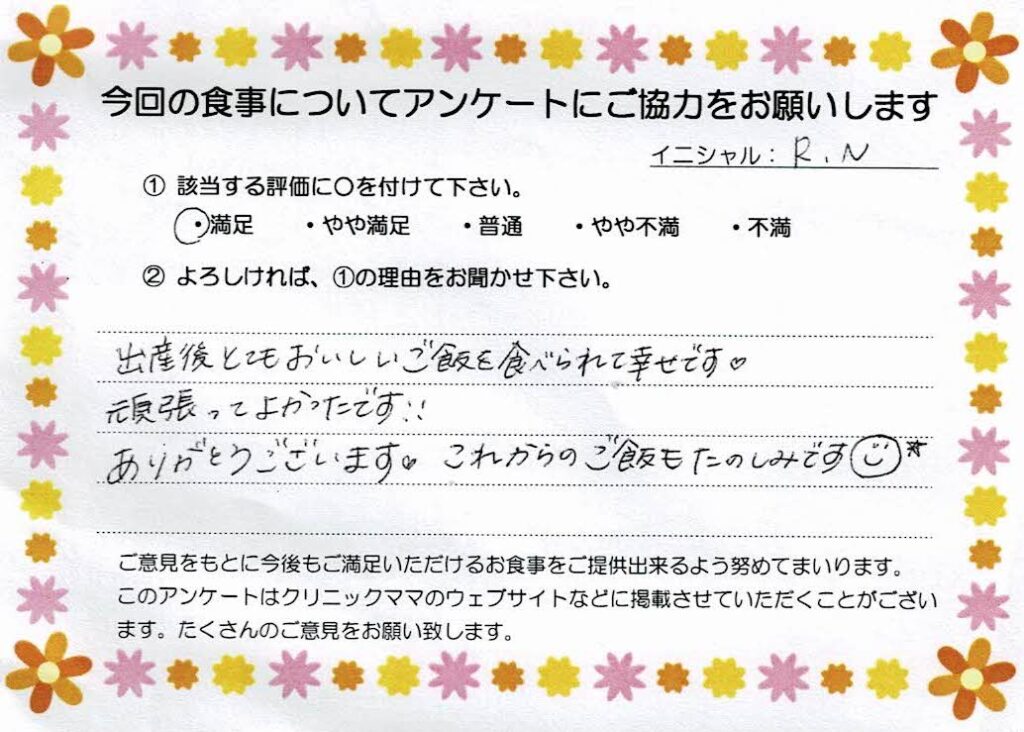 今回の食事についてアンケートにご協力をお願いします
イニシャル：R.N
① 該当する評価に○を付けて下さい。
・満足 ・やや満足 ・普通 ・やや不満 ・不満
② よろしければ、①の理由をお聞かせ下さい。
出産後とてもおいしいご飯を食べられて幸せです♡
頑張ってよかったです!!
ありがとうございます♡ これからのご飯もたのしみです☺☆
ご意見をもとに今後もご満足いただけるお食事をご提供出来るよう努めてまいります。
このアンケートはクリニックママのウェブサイトなどに掲載させていただくことがござい
ます。たくさんのご意見をお願い致します。